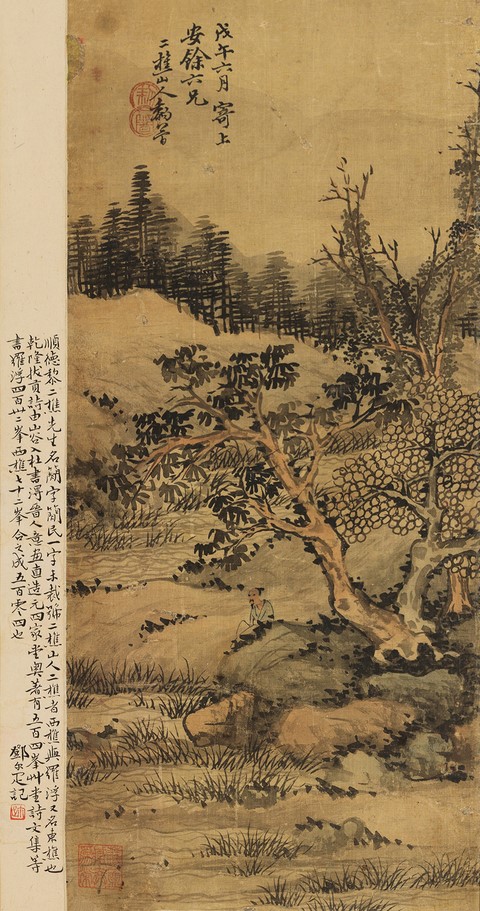 戊午六月寄上
安餘六兄
二樵山人
順德黎二樵先生名簡字簡民一字未裁號二樵山人二樵者西樵與羅浮又名東樵也
乾隆拔貢詩由山谷入杜書得晉人意畫直造元四家堂奧著有五百四峯艸堂詩文集等
書羅浮四百卅二峯西樵七十二峯合之成五百零四也
鄧尒疋記